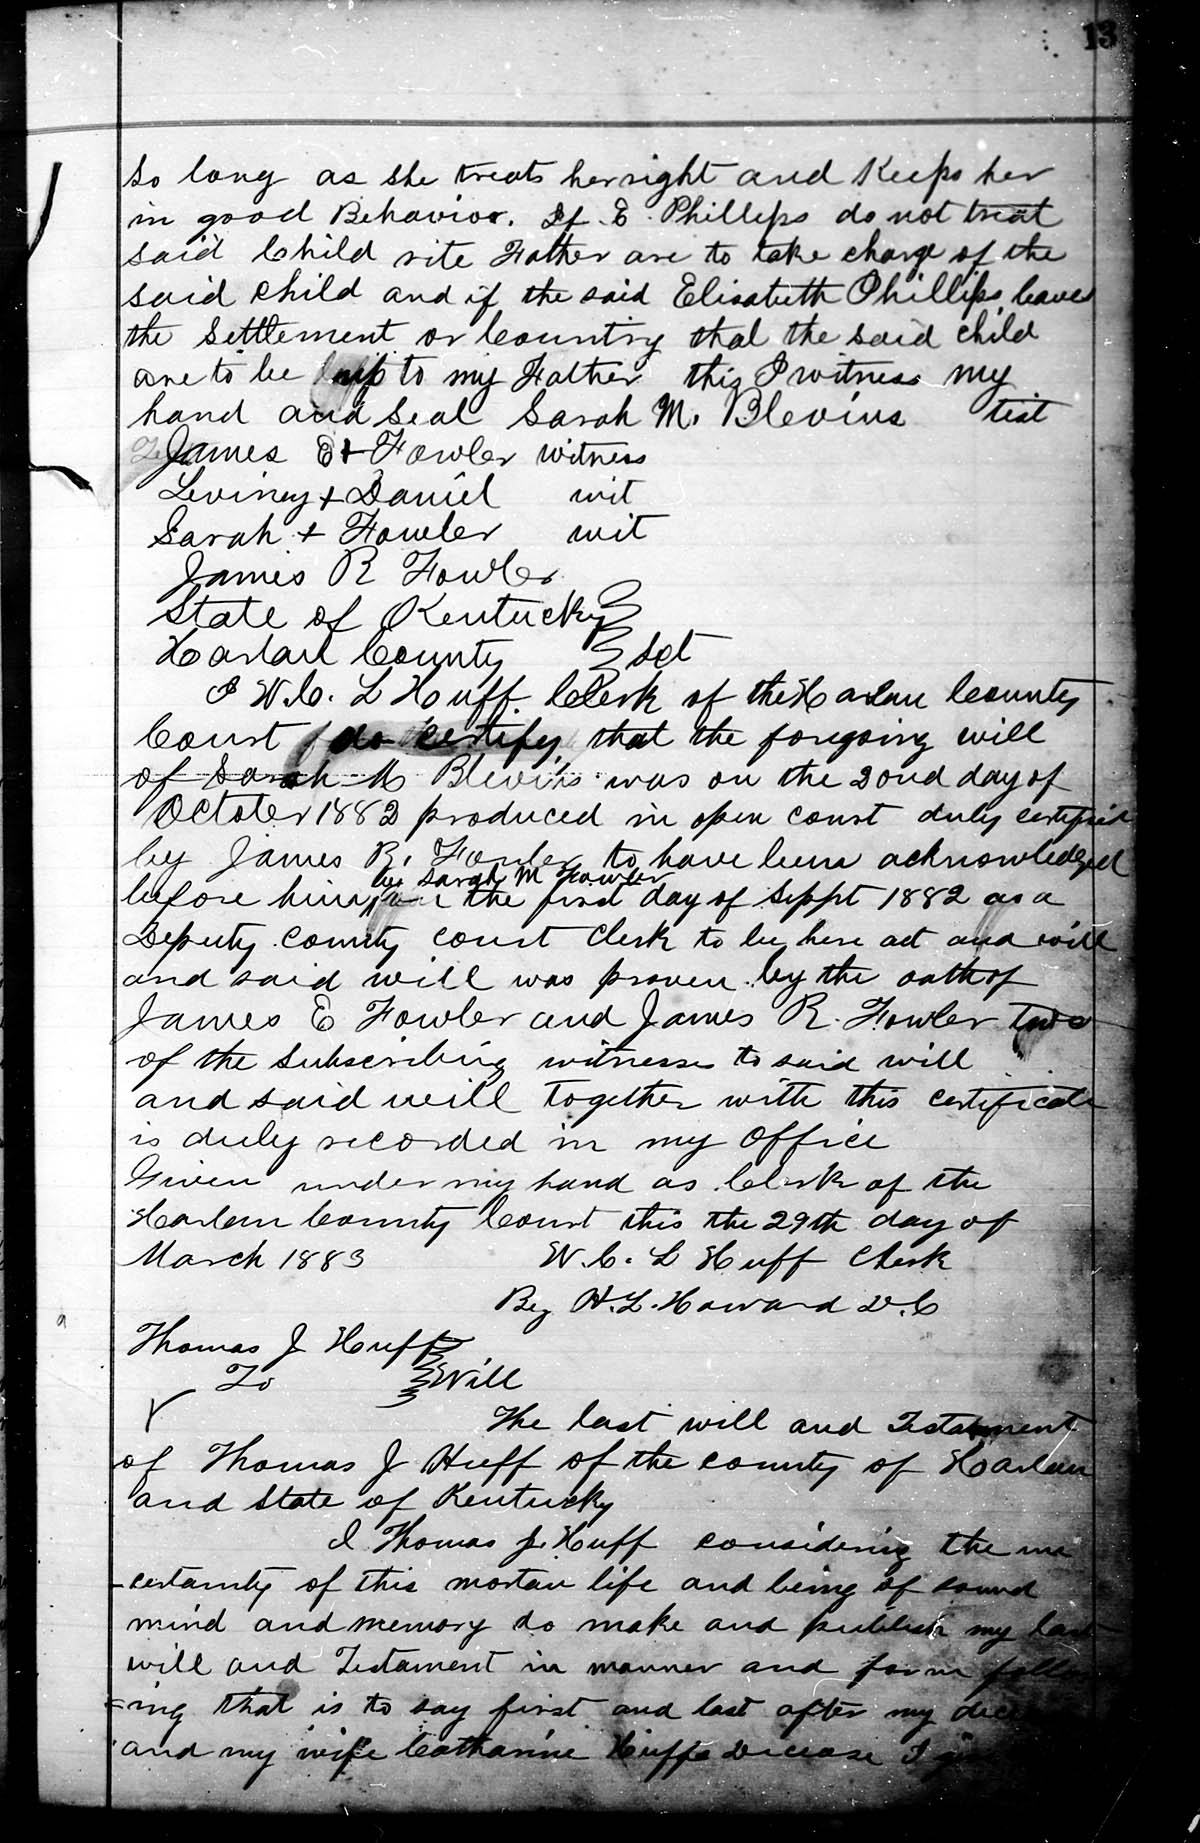 13
So long as she treats her right and Keeps her
in good Behavior. If E. Phillips do not treat
said Child rite Father are to take charge of the
said child and if the said Elisabeth Phillips leaves
the Settlement or Country that the said child
are to be up to my Father this I witness my
hand and seal Sarah M. Blevins tist
James E + Fowler witness
Leviney + Daniel wit
Sarah + Fowler wit
James R Fowler
State of Kentucky
Harlan County Sct
I W.C. L Huff. Clerk of the Harlan County
Court do certify that the foregoing will
of Sarah M Blevins was on the 22nd day of
October 1882 produced in open court duly certified
by James R. Fowler to have been acknowledged
by Sarah M Fowler
before him, on the first day of Seppt 1882 as a
Deputy County court Clerk to be here act and will
and said will was proven by the oath of
James E Fowler and James R. Fowler two
of the Subscribing witnesses to said will
and said will together with this certificate
is duly recorded in my office
Given under my hand as Clerk of the
Harlan County Court this the 29th day of
March 1883 W.C. L Huff Clerk
By H.L. Howard D.C
Thomas J Huff
To Will
The last will and Testament
of Thomas J Huff of the county of Harlan
and State of Kentucky
I Thomas J. Huff considering the un
-certainty of this mortail life and being of sound
mind and memory do make and publish my last
will and Testament in manner and form follow
=ing that is to say first and last after my
and my wife Catharine Huffs Decease I